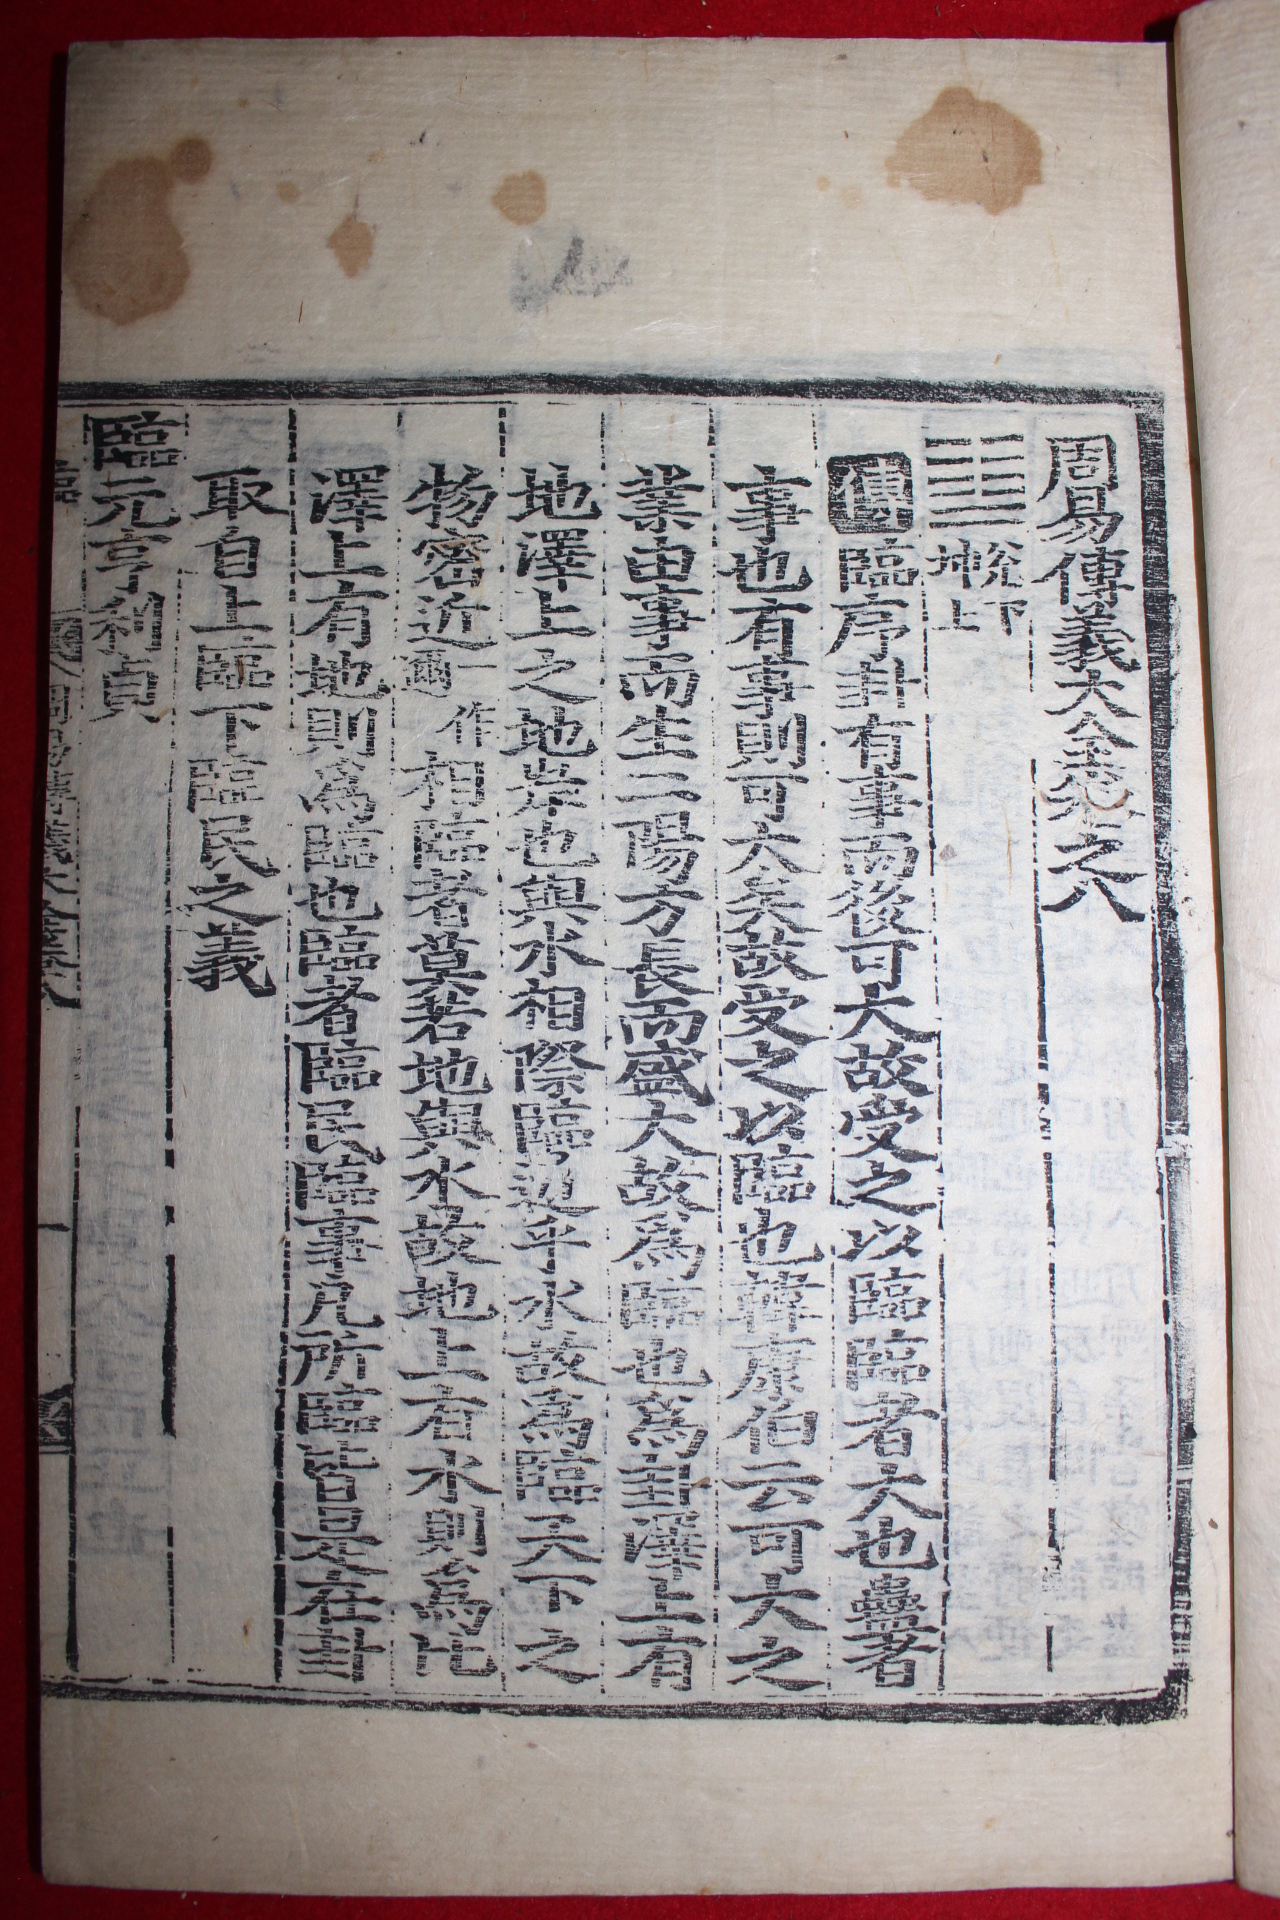 周易傳義大全卷之八
兌下
坤上
傳臨序卦有事而後可大故受之以臨臨者大也蠱者
事也有事則可大矣故受之以臨也韓康伯云可大之
業由事而生二陽方長而盛大故爲臨也爲卦澤上有
地澤上之地岸也與水相際臨近乎水故爲臨天下之
物密近一作邇相臨者莫若地與水故地上有水則爲比
澤上有地則爲臨也臨者臨民臨事凡所臨皆是在卦
取自上臨下臨民之義
臨元亨利貞